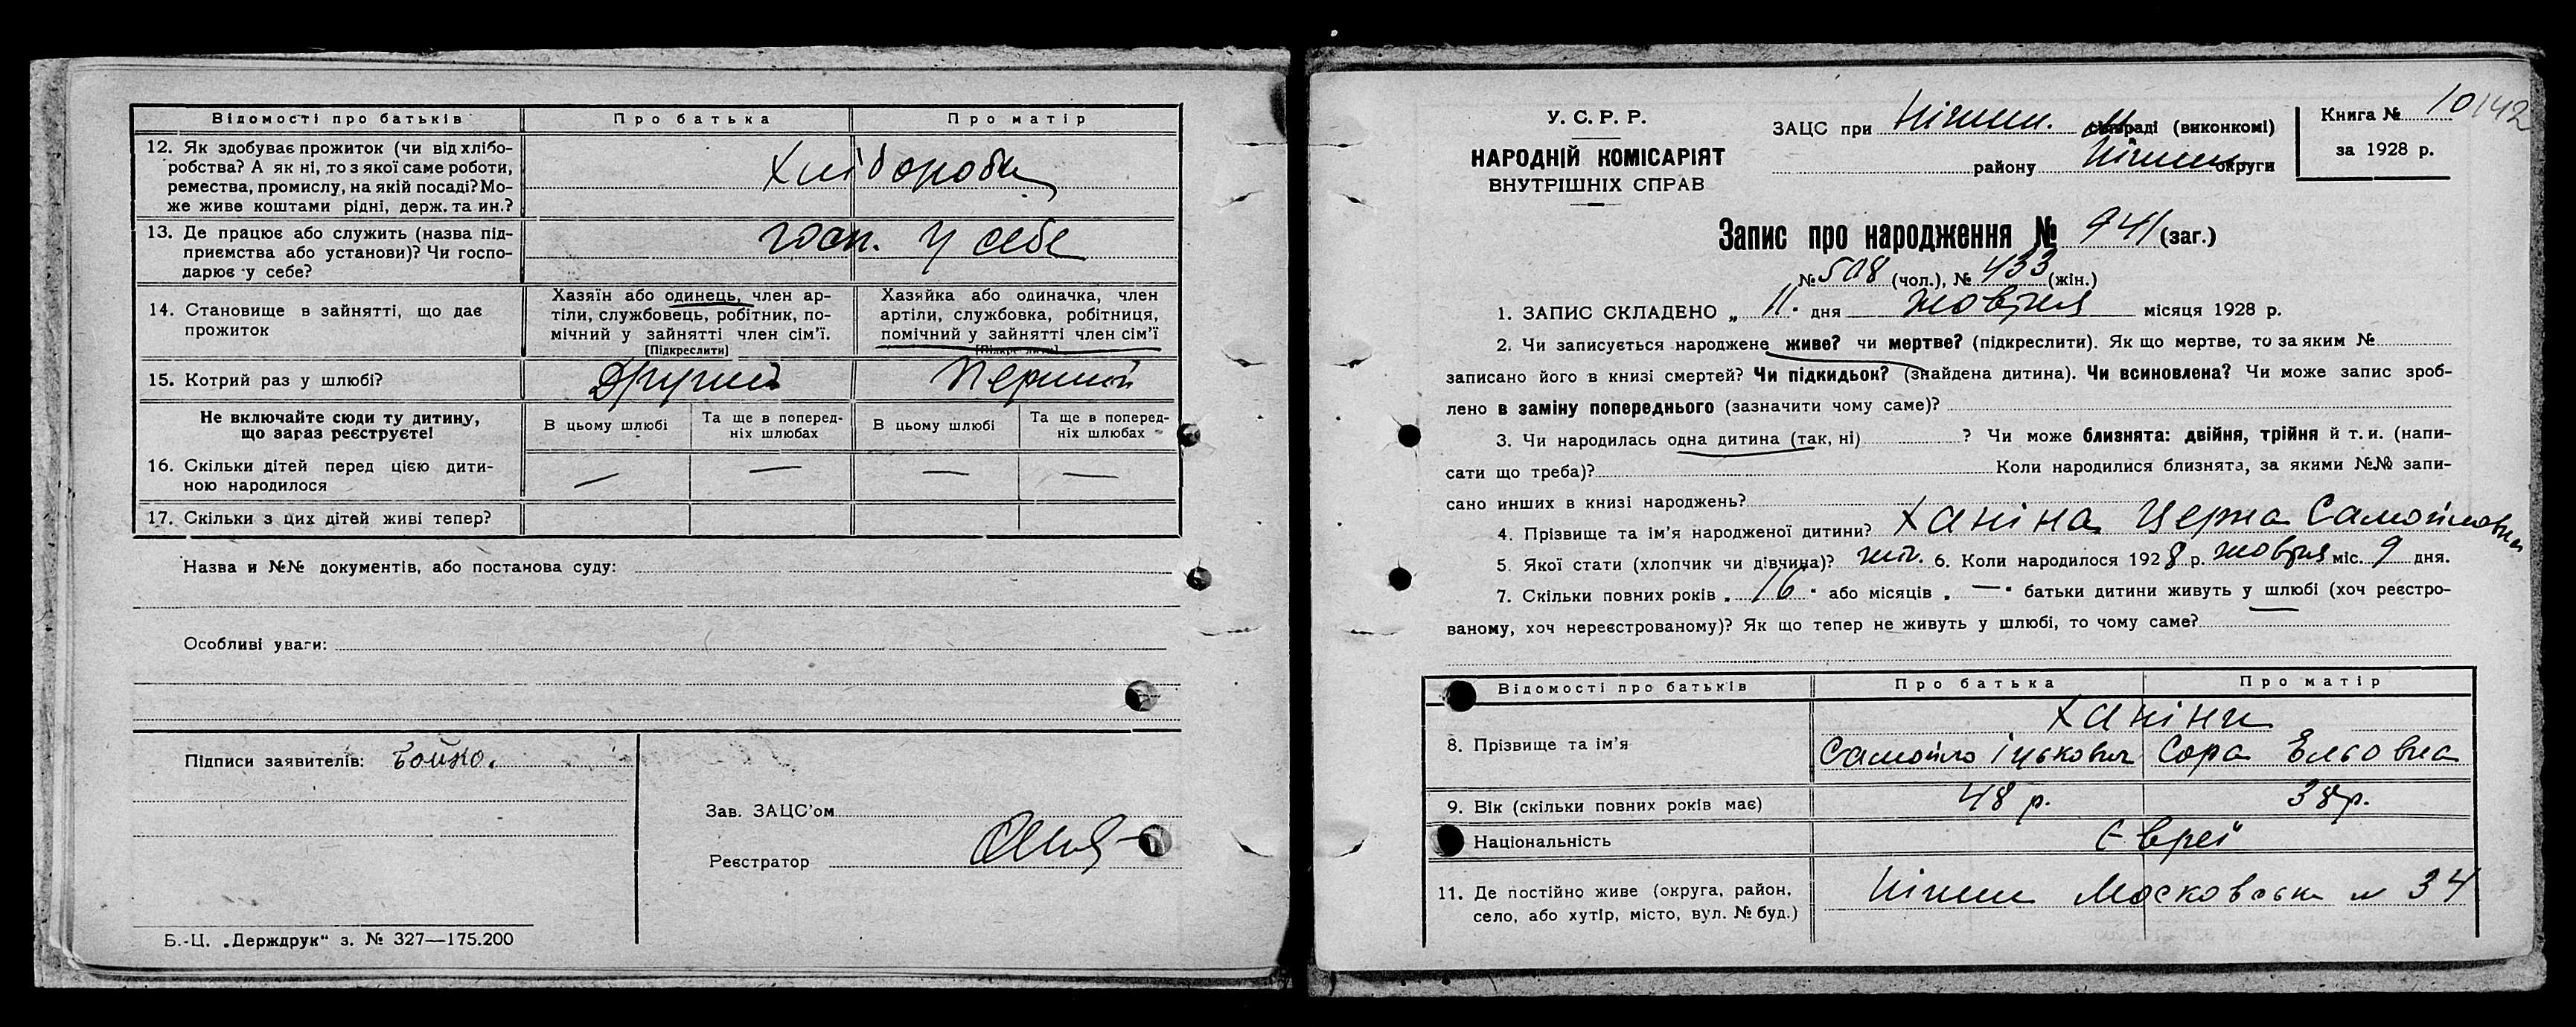 Відомості про батьків
Про батька
Про матір
12. Як здобуває прожиток (чи від хлібо-
робства? А як ні, то з якої саме роботи,
ремества, промислу, на якій посаді? Мо-
же живе коштами рідні, держ. та ин.?
Хлібороби
13. Де працює або служить (назва під-
приємства або установи)? Чи госпо-
дарює у себе?
госп. у себе
14. Становище в зайнятті, що дає
прожиток
Хазяїн або одинець, член ар-
тіли, службовець, робітник, по-
мічний у зайнятті член сім'ї.
[Підкреслити]
Хазяйка або одиначка, член
артіли, службовка, робітниця,
помічний у зайнятті член сім'ї
[Підкреслити]
15. Котрий раз у шлюбі?
Другий
Перший
Не включайте сюди ту дитину,
що зараз реєструєте!
В цьому шлюбі
Та ще в поперед-
ніх шлюбах
В цьому шлюбі
Та ще в поперед-
ніх шлюбах
16. Скільки дітей перед цією дити-
ною народилося
— — — —
17. Скільки з цих дітей живі тепер?
Назва и №№ документів, або постанова суду:
Особливі уваги:
Підписи заявителів: Бойко.
Зав. ЗАЦС'ом
Реєстратор
Б.-Ц. „Держдрук“ з. № 327—175.200
У. С. Р. Р.
НАРОДНІЙ КОМІСАРІЯТ
ВНУТРІШНІХ СПРАВ
ЗАЦС при Ніжин. раді (виконкомі)
району Ніжин округи
Книга № 10
142
за 1928 р.
Запис про народження № 941 (заг.)
№ 508 (чол.), № 433 (жін.)
1. ЗАПИС СКЛАДЕНО „ 11 “ дня жовтня місяця 1928 р.
2. Чи записується народжене живе? чи мертве? (підкреслити). Як що мертве, то за яким №
записано його в книзі смертей? Чи підкидьок? (знайдена дитина). Чи всиновлена? Чи може запис зроб-
лено в заміну попереднього (зазначити чому саме)?
3. Чи народилась одна дитина (так, ні) ? Чи може близнята: двійня, трійня й т. и. (напи-
сати що треба)? Коли народилися близнята, за якими №№ запи-
сано инших в книзі народжень?
4. Прізвище та ім'я народженої дитини? Ханіна Церна Самойловна
5. Якої стати (хлопчик чи дівчина)? жін. 6. Коли народилося 1928 р. жовтня міс. 9 дня.
7. Скільки повних років „ 16 “ або місяців „ — “ батьки дитини живуть у шлюбі (хоч реєстро-
ваному, хоч нереєстрованому)? Як що тепер не живуть у шлюбі, то чому саме?
Відомості про батьків
Про батька
Про матір
8. Прізвище та ім'я
Ханіни
Самойло Іцькович
Сора Ельовна
9. Вік (скільки повних років має)
48 р.
38 р.
Національність
Євреї
11. Де постійно живе (округа, район,
село, або хутір, місто, вул. № буд.)
Ніжин Московська № 34